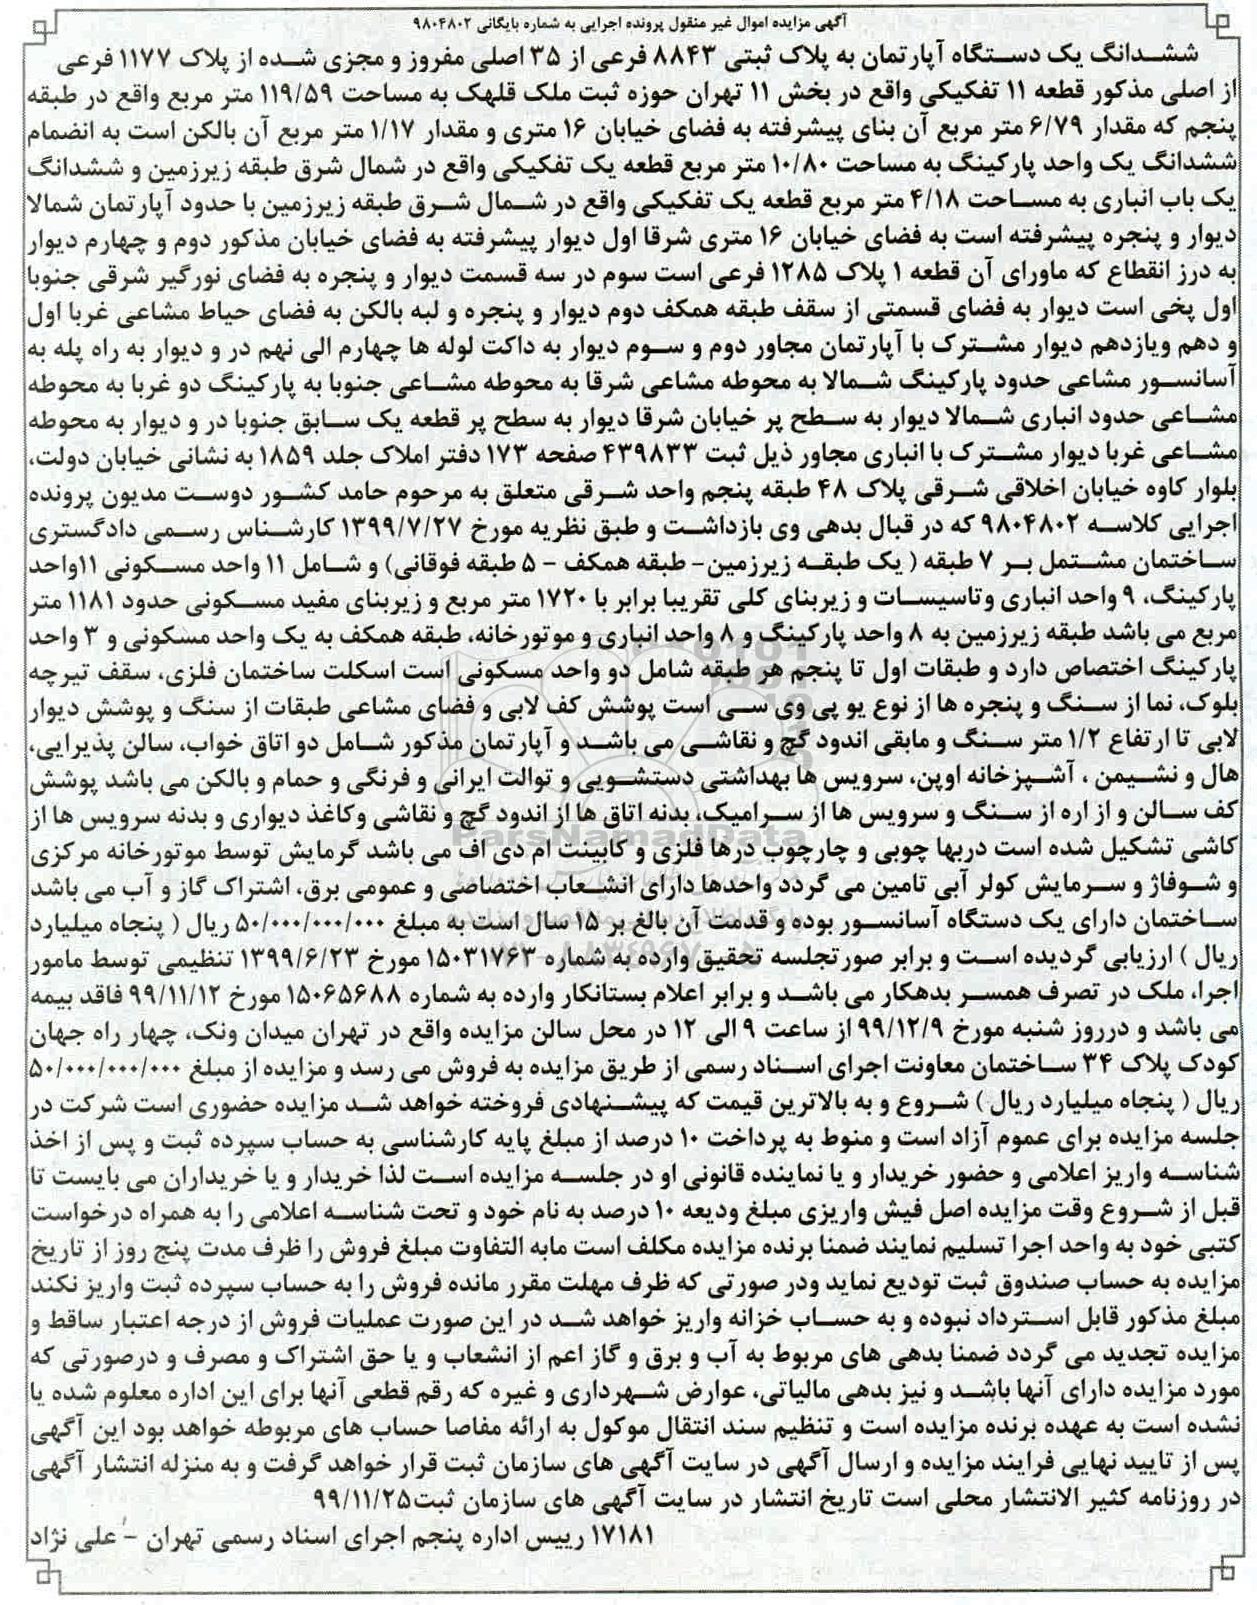 آگهی مزایده اموال غیر منقول پرونده اجرایی به شماره بایگانی ۹۸۰۴۸۰۲
ششدانگ یک دستگاه آپارتمان به پلاک ثبتی ۸۸۴۳ فرعی از ۳۵ اصلی مفروز و مجزی شده از پلاک ۱۱۷۷ فرعی
از اصلی مذکور قطعه ۱۱ تفکیکی واقع در بخش ۱۱ تهران حوزه ثبت ملک قلهک به مساحت ۱۱۹/۵۹ متر مربع واقع در طبقه
پنجم که مقدار ۶/۷۹ متر مربع آن بنای پیشرفته به فضای خیابان ۱۶ متری و مقدار ۱/۱۷ متر مربع آن بالکن است به انضمام
ششدانگ یک واحد پارکینگ به مساحت ۱۰/۸۰ متر مربع قطعه یک تفکیکی واقع در شمال شرق طبقه زیرزمین و ششدانگ
یک باب انباری به مساحت ۴/۱۸ متر مربع قطعه یک تفکیکی واقع در شمال شرق طبقه زیرزمین با حدود آپارتمان شمالا
دیوار و پنجره پیشرفته است به فضای خیابان ۱۶ متری شرقا اول دیوار پیشرفته به فضای خیابان مذکور دوم و چهارم دیوار
به درز انقطاع که ماورای آن قطعه ۱ پلاک ۱۲۸۵ فرعی است سوم در سه قسمت دیوار و پنجره به فضای نورگیر شرقی جنوبا
اول پخی است دیوار به فضای قسمتی از سقف طبقه همکف دوم دیوار و پنجره و لبه بالکن به فضای حیاط مشاعی غربا اول
و دهم ویازدهم دیوار مشترک با آپارتمان مجاور دوم و سوم دیوار به داکت لوله ها چهارم الی نهم در و دیوار به راه پله به
آسانسور مشاعی حدود پارکینگ شمالا به محوطه مشاعی شرقا به محوطه مشاعی جنوبا به پارکینگ دو غربا به محوطه
مشاعی حدود انباری شمالا دیوار به سطح پر خیابان شرقا دیوار به سطح پر قطعه یک سابق جنوبا در و دیوار به محوطه
مشاعی غربا دیوار مشترک با انباری مجاور ذیل ثبت ۴۳۹۸۳۳ صفحه ۱۷۳ دفتر املاک جلد ۱۸۵۹ به نشانی خیابان دولت،
بلوار کاوه خیابان اخلاقی شرقی پلاک ۴۸ طبقه پنجم واحد شرقی متعلق به مرحوم حامد کشور دوست مدیون پرونده
اجرایی کلاسه ۹۸۰۴۸۰۲ که در قبال بدهی وی بازداشت و طبق نظریه مورخ ۱۳۹۹/۷/۲۷ کارشناس رسمی دادگستری
ساختمان مشتمل بر ۷ طبقه ( یک طبقه زیرزمین- طبقه همکف - ۵ طبقه فوقانی) و شامل ۱۱ واحد مسکونی ۱۱واحد
پارکینگ، ۹ واحد انباری وتاسیسات و زیربنای کلی تقریبا برابر با ۱۷۲۰ متر مربع و زیربنای مفید مسکونی حدود ۱۱۸۱ متر
مربع می باشد طبقه زیرزمین به ۸ واحد پارکینگ و ۸ واحد انباری و موتورخانه، طبقه همکف به یک واحد مسکونی و ۳ واحد
پارکینگ اختصاص دارد و طبقات اول تا پنجم هر طبقه شامل دو واحد مسکونی است اسکلت ساختمان فلزی، سقف تیرچه
بلوک، نما از سنگ و پنجره ها از نوع یو پی وی سی است پوشش کف لابی و فضای مشاعی طبقات از سنگ و پوشش دیوار
لابی تا ارتفاع ۱/۲ متر سنگ و مابقی اندود گچ و نقاشی می باشد و آپارتمان مذکور شامل دو اتاق خواب، سالن پذیرایی،
هال و نشیمن ، آشپزخانه اوپن، سرویس ها بهداشتی دستشویی و توالت ایرانی و فرنگی و حمام و بالکن می باشد پوشش
کف سالن و از اره از سنگ و سرویس ها از سرامیک، بدنه اتاق ها از اندود گچ و نقاشی وکاغذ دیواری و بدنه سرویس ها از
کاشی تشکیل شده است دربها چوبی و چارچوب درها فلزی و کابینت ام دی اف می باشد گرمایش توسط موتورخانه مرکزی
و شوفاژ و سرمایش کولر آبی تامین می گردد واحدها دارای انشعاب اختصاصی و عمومی برق، اشتراک گاز و آب می باشد
ساختمان دارای یک دستگاه آسانسور بوده و قدمت آن بالغ بر ۱۵ سال است به مبلغ ۵۰/۰۰۰/۰۰۰/۰۰۰ ریال ( پنجاه میلیارد
ریال ) ارزیابی گردیده است و برابر صورتجلسه تحقیق وارده به شماره ۱۵۰۳۱۷۶۳ مورخ ۱۳۹۹/۶/۲۳ تنظیمی توسط مامور
اجرا، ملک در تصرف همسر بدهکار می باشد و برابر اعلام بستانکار وارده به شماره ۱۵۰۶۵۶۸۸ مورخ ۹۹/۱۱/۱۲ فاقد بیمه
می باشد و درروز شنبه مورخ ۹۹/۱۲/۹ از ساعت ۹ الی ۱۲ در محل سالن مزایده واقع در تهران میدان ونک، چهار راه جهان
کودک پلاک ۳۴ ساختمان معاونت اجرای اسناد رسمی از طریق مزایده به فروش می رسد و مزایده از مبلغ ۵۰/۰۰۰/۰۰۰/۰۰۰
ریال ( پنجاه میلیارد ریال ) شروع و به بالاترین قیمت که پیشنهادی فروخته خواهد شد مزایده حضوری است شرکت در
جلسه مزایده برای عموم آزاد است و منوط به پرداخت ۱۰ درصد از مبلغ پایه کارشناسی به حساب سپرده ثبت و پس از اخذ
شناسه واریز اعلامی و حضور خریدار و یا نماینده قانونی او در جلسه مزایده است لذا خریدار و یا خریداران می بایست تا
قبل از شروع وقت مزایده اصل فیش واریزی مبلغ ودیعه ۱۰ درصد به نام خود و تحت شناسه اعلامی را به همراه درخواست
کتبی خود به واحد اجرا تسلیم نمایند ضمنا برنده مزایده مکلف است مابه التفاوت مبلغ فروش را ظرف مدت پنج روز از تاریخ
مزایده به حساب صندوق ثبت تودیع نماید ودر صورتی که ظرف مهلت مقرر مانده فروش را به حساب سپرده ثبت واریز نکند
مبلغ مذکور قابل استرداد نبوده و به حساب خزانه واریز خواهد شد در این صورت عملیات فروش از درجه اعتبار ساقط و
مزایده تجدید می گردد ضمنا بدهی های مربوط به آب و برق و گاز اعم از انشعاب و یا حق اشتراک و مصرف و درصورتی که
مورد مزایده دارای آنها باشد و نیز بدهی مالیاتی، عوارض شهرداری و غیره که رقم قطعی آنها برای این اداره معلوم شده یا
نشده است به عهده برنده مزایده است و تنظیم سند انتقال موکول به ارائه مفاصا حساب های مربوطه خواهد بود این آگهی
پس از تایید نهایی فرایند مزایده و ارسال آگهی در سایت آگهی های سازمان ثبت قرار خواهد گرفت و به منزله انتشار آگهی
در روزنامه کثیر الانتشار محلی است تاریخ انتشار در سایت آگهی های سازمان ثبت۹۹/۱۱/۲۵
۱۷۱۸۱ رییس اداره پنجم اجرای اسناد رسمی تهران - علی نژاد
ParsNamadData